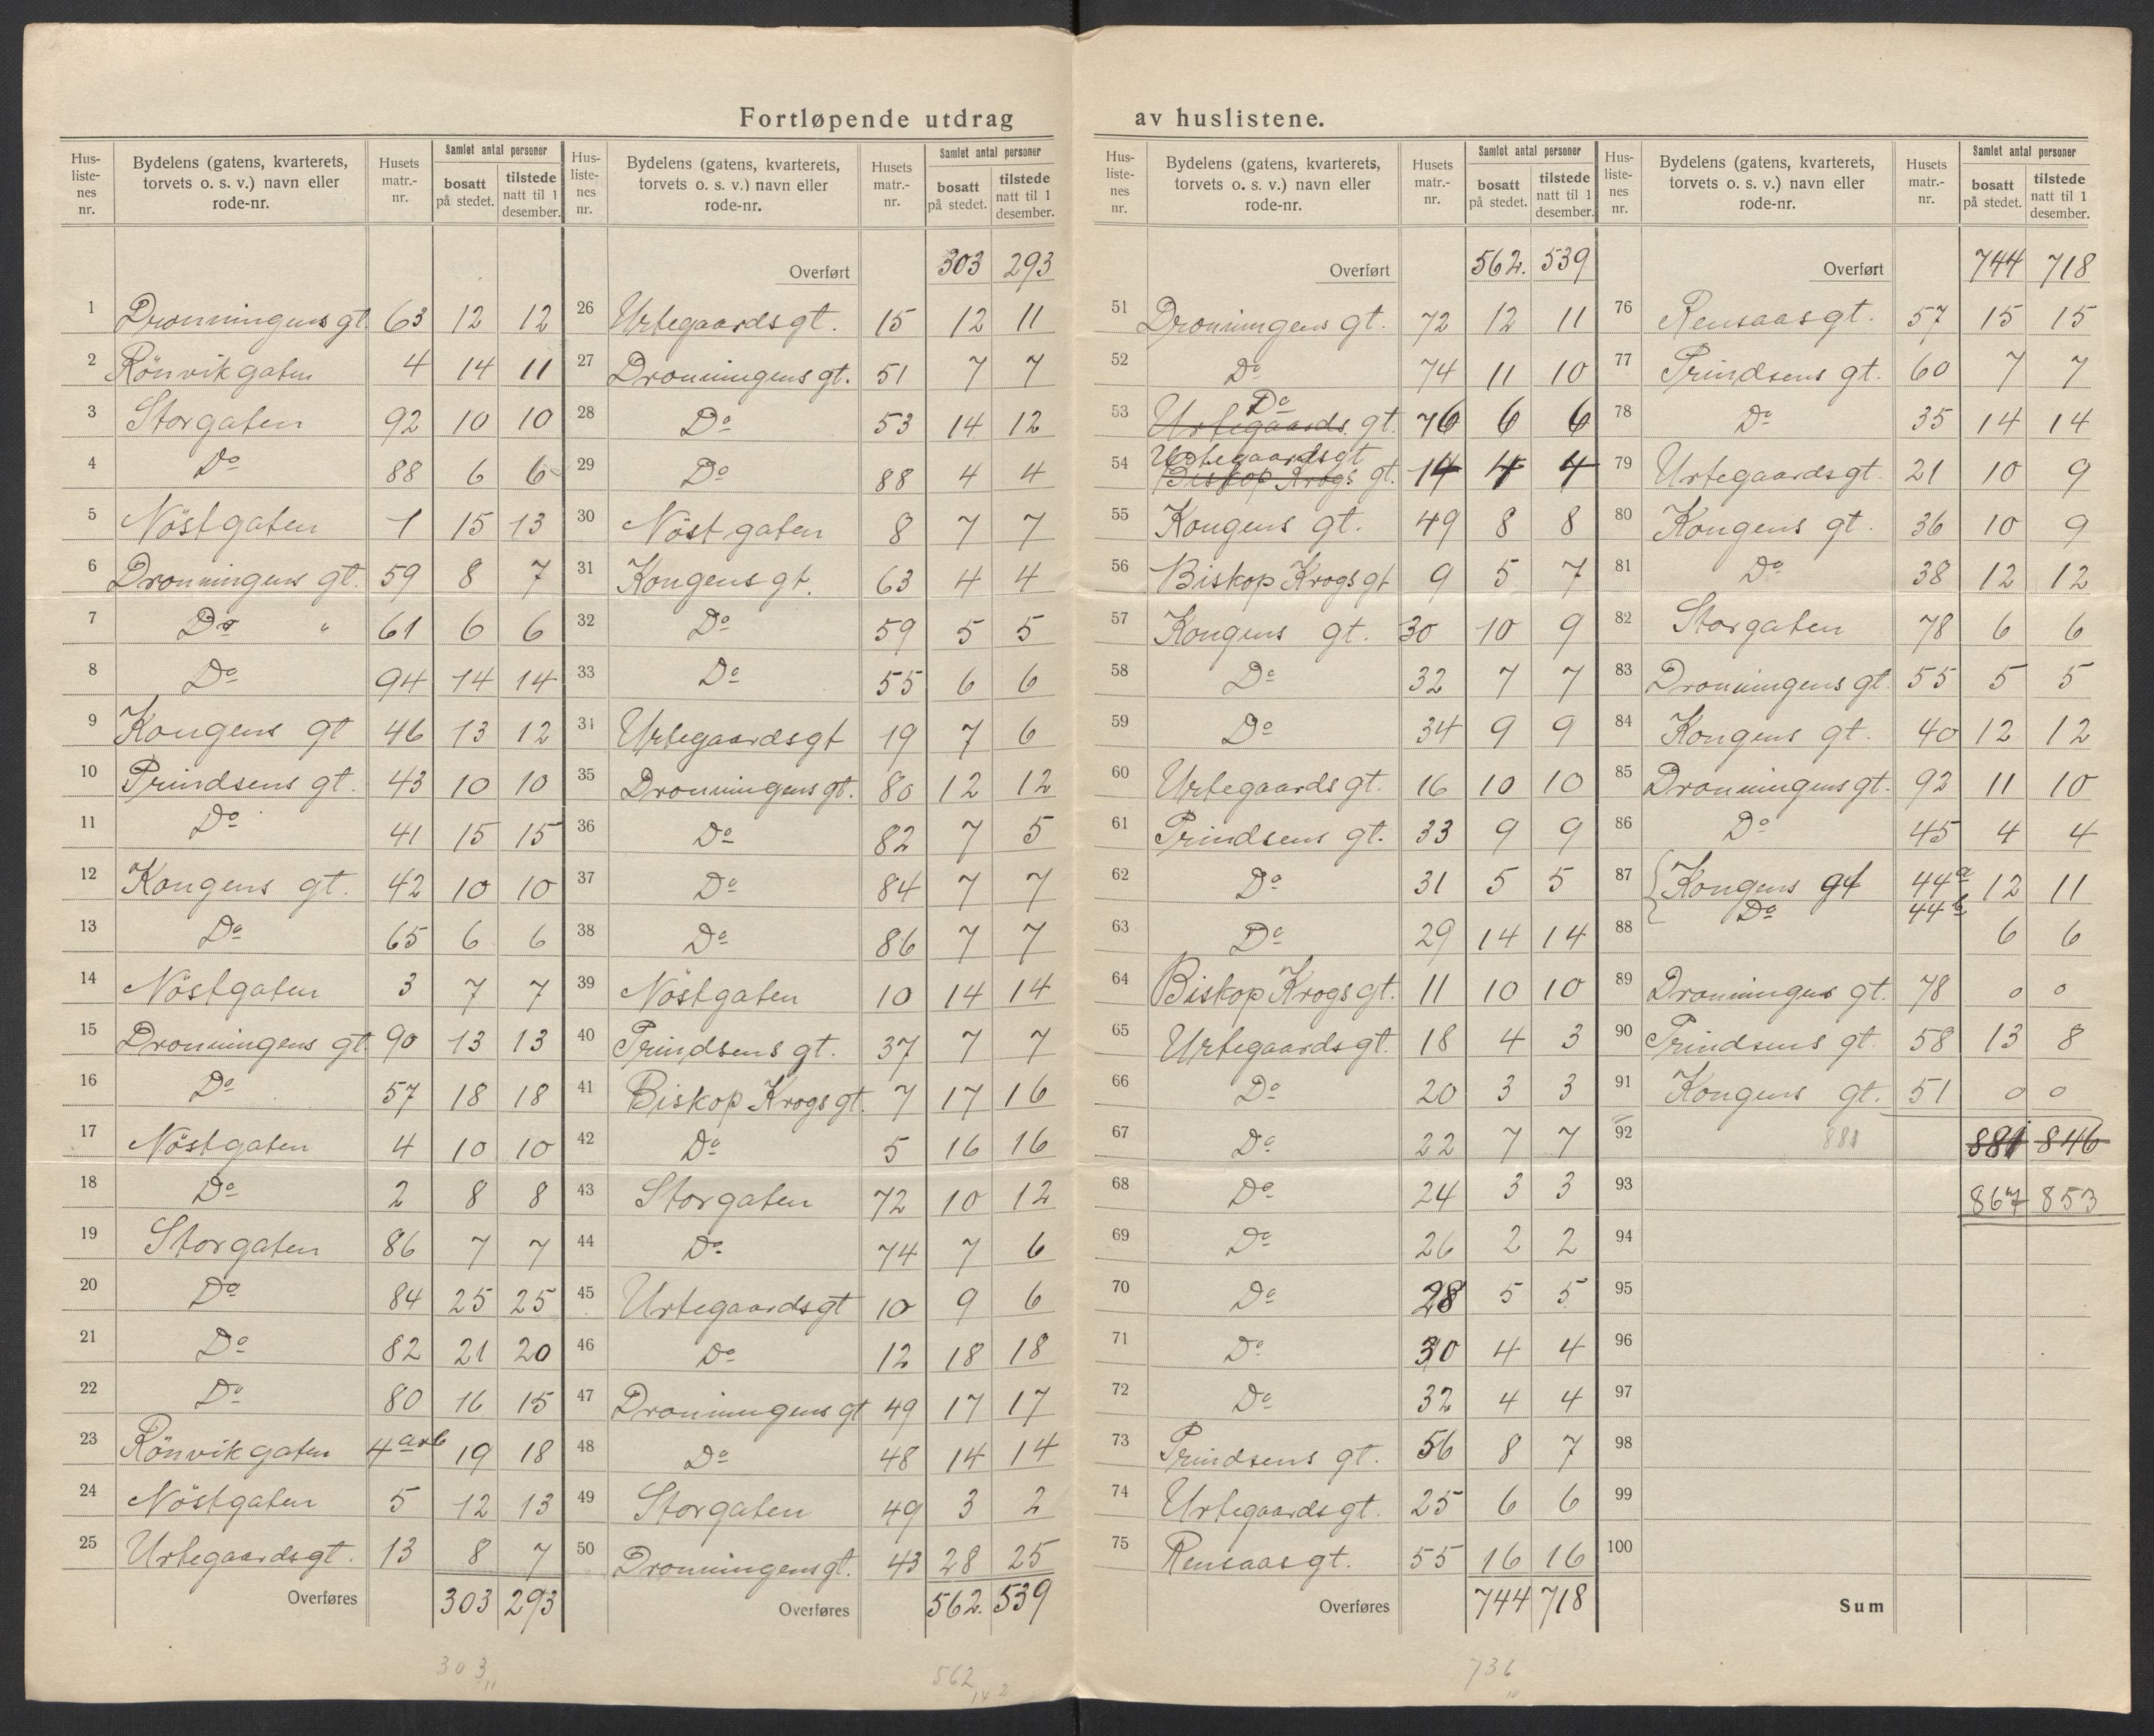 Fortløpende utdrag av huslistene.
Hus-listenes nr. | Bydelens (gatens, kvarterets, torvets o. s. v.) navn eller rode-nr. | Husets matr.-nr. | Samlet antal personer bosatt på stedet. | tilstede natt til 1 desember.
1 Dronningens gt. 63 12 12
2 Rönvikgaten 4 14 11
3 Storgaten 92 10 10
4 Do 88 6 6
5 Nöstgaten 1 15 13
6 Dronningens gt. 59 8 7
7 Do " 61 6 6
8 Do 94 14 14
9 Kongens gt 46 13 12
10 Prindsens gt. 43 10 10
11 Do 41 15 15
12 Kongens gt. 42 10 10
13 Do 65 6 6
14 Nöstgaten 3 7 7
15 Dronningens gt. 90 13 13
16 Do 57 18 18
17 Nöstgaten 4 10 10
18 Do 2 8 8
19 Storgaten 86 7 7
20 Do 84 25 25
21 Do 82 21 20
22 Do 80 16 15
23 Rönvikgaten 4 19 18
24 Nöstgaten 5 12 13
25 Urtegaardsgt. 13 8 7
Overføres 303 293
303
Hus-listenes nr. | Bydelens (gatens, kvarterets, torvets o. s. v.) navn eller rode-nr. | Husets matr.-nr. | Samlet antal personer bosatt på stedet. | tilstede natt til 1 desember.
Overført 303 293
26 Urtegaardsgt. 15 12 11
27 Dronningens gt. 51 7 7
28 Do 53 14 12
29 Do 88 4 4
30 Nöstgaten 8 7 7
31 Kongens gt. 63 4 4
32 Do 59 5 5
33 Do 55 6 6
34 Urtegaardsgt 19 7 6
35 Dronningens gt. 80 12 12
36 Do 82 7 5
37 Do 84 7 7
38 Do 86 7 7
39 Nöstgaten 10 14 14
40 Prindsens gt. 37 7 7
41 Biskop Krogs gt. 7 17 16
42 Do 5 16 16
43 Storgaten 72 10 12
44 Do 74 7 6
45 Urtegaardsgt 10 9 6
46 Do 12 18 18
47 Dronningens gt 49 17 17
48 Do 48 14 14
49 Storgaten 49 3 2
50 Dronningens gt. 43 28 25
Overføres 562. 539
562
Hus-listenes nr. | Bydelens (gatens, kvarterets, torvets o. s. v.) navn eller rode-nr. | Husets matr.-nr. | Samlet antal personer bosatt på stedet. | tilstede natt til 1 desember.
Overført 562. 539
51 Dronningens gt. 72 12 11
52 Do 74 11 10
Do
53 Urtegaards gt. 76 6 6
Urtegaardsgt
54 Biskop Krogs gt. 14 4 4
55 Kongens gt. 49 8 8
56 Biskop Krogs gt 9 5 7
57 Kongens gt. 30 10 9
58 Do 32 7 7
59 Do 34 9 9
60 Urtegaardsgt. 16 10 10
61 Prindsens gt. 33 9 9
62 Do 31 5 5
63 Do 29 14 14
64 Biskop Krogs gt. 11 10 10
65 Urtegaardsgt. 18 4 3
66 Do 20 3 3
67 Do 22 7 7
68 Do 24 3 3
69 Do 26 2 2
70 Do 28 5 5
71 Do 30 4 4
72 Do 32 4 4
73 Prindsens gt. 56 8 7
74 Urtegaardsgt. 25 6 6
75 Rensaasgt. 55 16 16
Overføres 744 718
736
Hus-listenes nr. | Bydelens (gatens, kvarterets, torvets o. s. v.) navn eller rode-nr. | Husets matr.-nr. | Samlet antal personer bosatt på stedet. | tilstede natt til 1 desember.
Overført 744 718
76 Rensaasgt. 57 15 15
77 Prindsens gt. 60 7 7
78 Do 35 14 14
79 Urtegaardsgt. 21 10 9
80 Kongens gt. 36 10 9
81 Do 38 12 12
82 Storgaten 78 6 6
83 Dronningens gt. 55 5 5
84 Kongens gt. 40 12 12
85 Dronningens gt. 92 11 10
86 Do 45 4 4
87 Kongens gt 44a 12 11
88 Do 44b 6 6
89 Dronningens gt. 78 0 0
90 Prindsens gt. 58 13 8
91 Kongens gt. 51 0 0
92 881 881 846
93 867 853
94
95
96
97
98
99
100
Sum